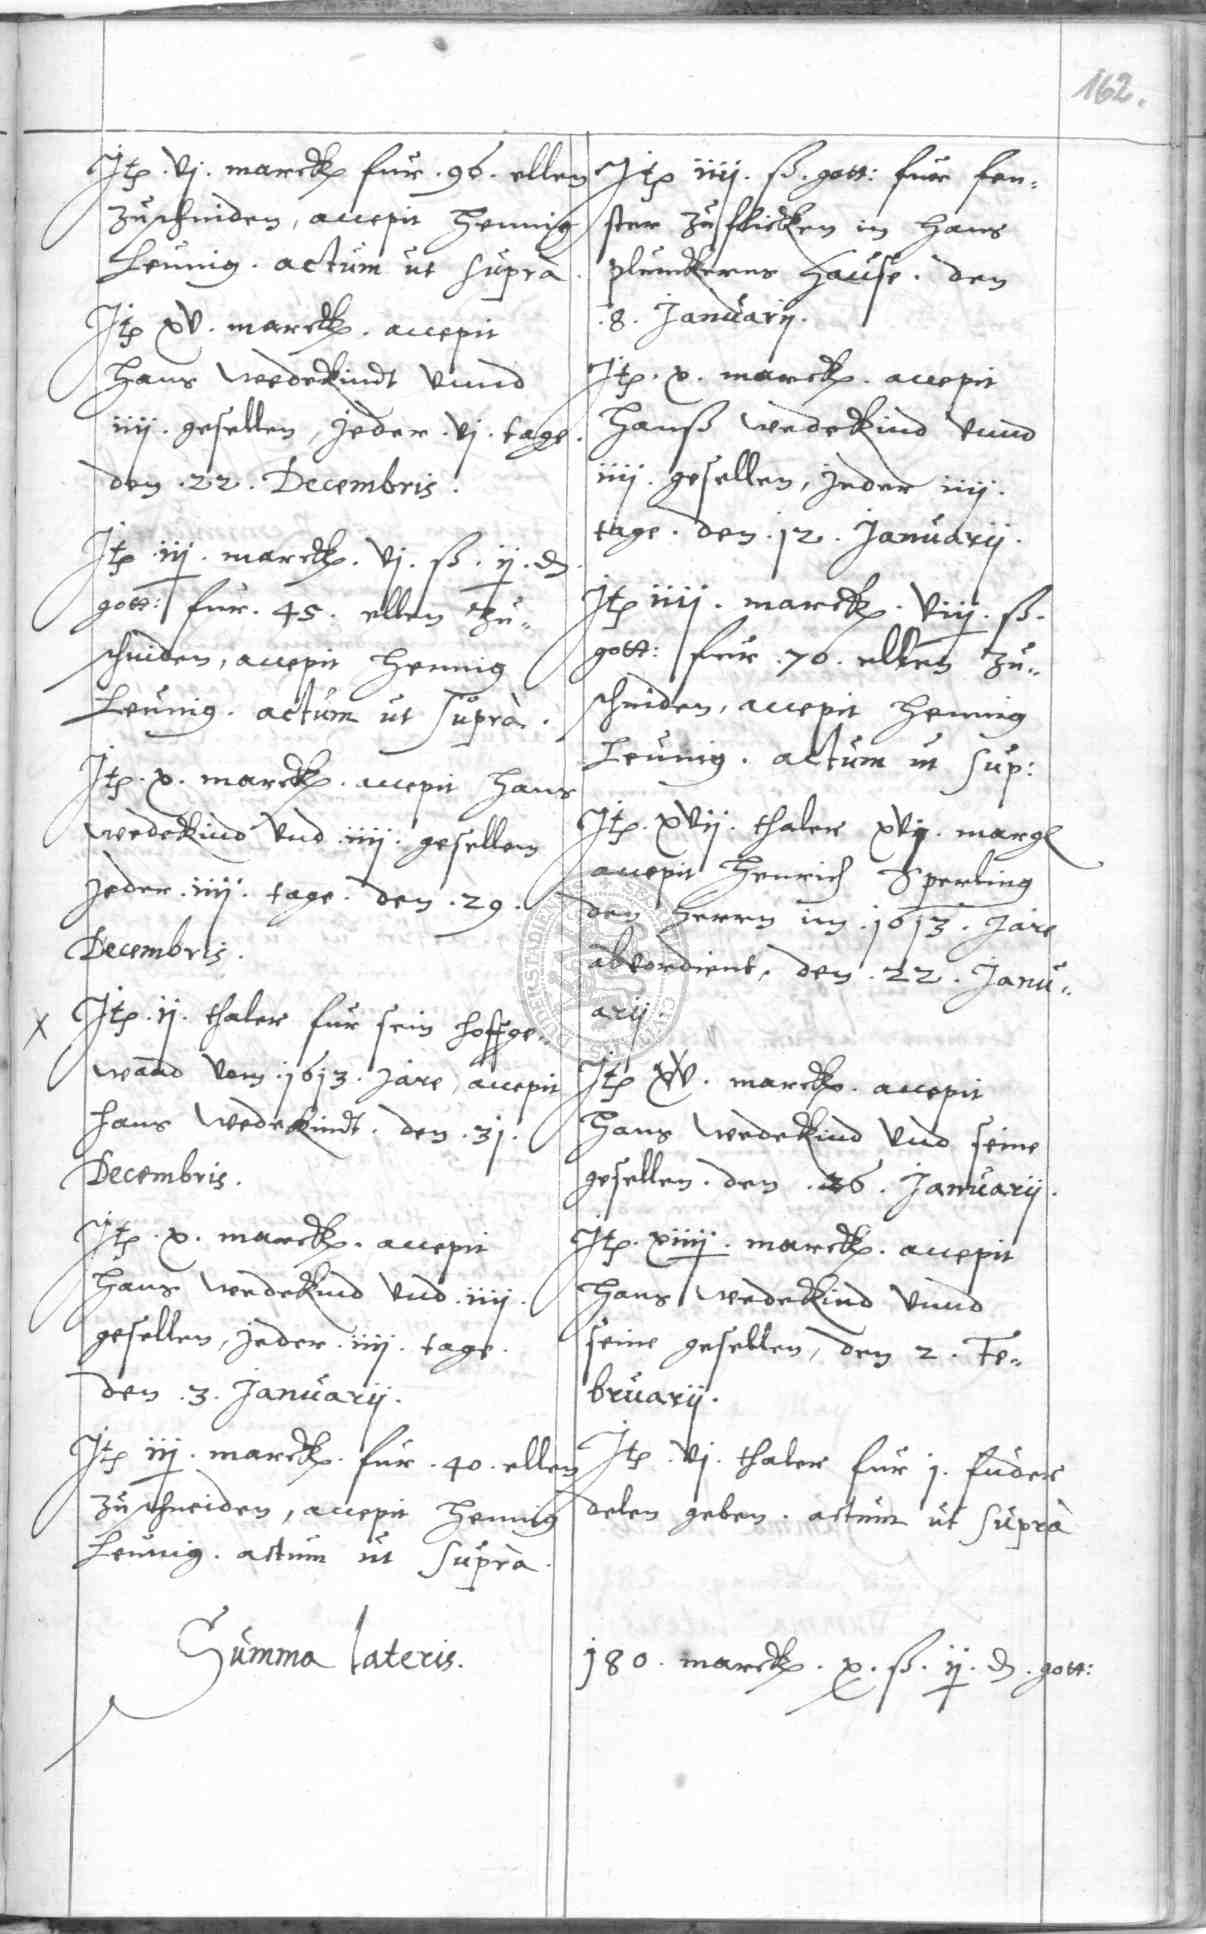 162.
Itē. vj. marckē für. 96. ellen
Zuschniden, accepit Hennig
Leunig. actum ut suprà.
Itē xv. marckē. accepit
Hans Wedekindt Vnnd
iiij. gesellen, Jeder. vj. tage.
den. 22. Decembris.
Itē. iij. marckē. vj. ß. ij. ₰.
gott: für. 45. ellen Zu-
schniden, accepit Hennig
Leunig. actum ut suprà.
Itē. x. marckē. accepit Hans
Wedekind Vnd. iiij. gesellen
Jeder. iiij. tage. den. 29.
Decembris.
x Itē. ij. thaler für sein hoffge-
wand Vom. 1613. Jare, accepit
Hans Wedekindt. den. 31.
Decembris.
Itē. x. marckē. accepit
Hans Wedekind Vnd. iiij.
gesellen, jeder. iiij. tage.
den. 3. Januarij.
Itē iij. marckē. für. 40. ellen
Zuschneiden, accepit Hennig
Leunig. actum ut suprà.
Itē iiij. ß. gott: für fen-
ster Zuflicken in Hans
Plünckerns Hause. den
.8. Januarij.
Itē. x. marckē. accepit
Hanß Wedekind Vnnd
iiij. gesellen, jeder iiij.
tage. den. 12. Januarij.
Itē iiij. marckē. viij. ß.
gott: für. 70. ellen Zu-
schniden, accepit Hennig
Leunig. actum ut sup:
Itē. xvij. thaler xvij. margl
accepit Henrich Sperling
den Herrn im. 1613. Jare
abVordient, den. 22. Janu-
arij
Itē xv. marckē. accepit
Hans Wedekind Vnd seine
gesellen. den. 26. Januarij.
Itē. xiiij. marckē. accepit
Hans Wedekind Vnnd
seine gesellen, den 2. Fe-
bruarij.
Itē. vj. thaler für j. fuder
delen geben. actum ut suprà
Summa lateris. 180. marckē. x. ß. ij. ₰. gott: